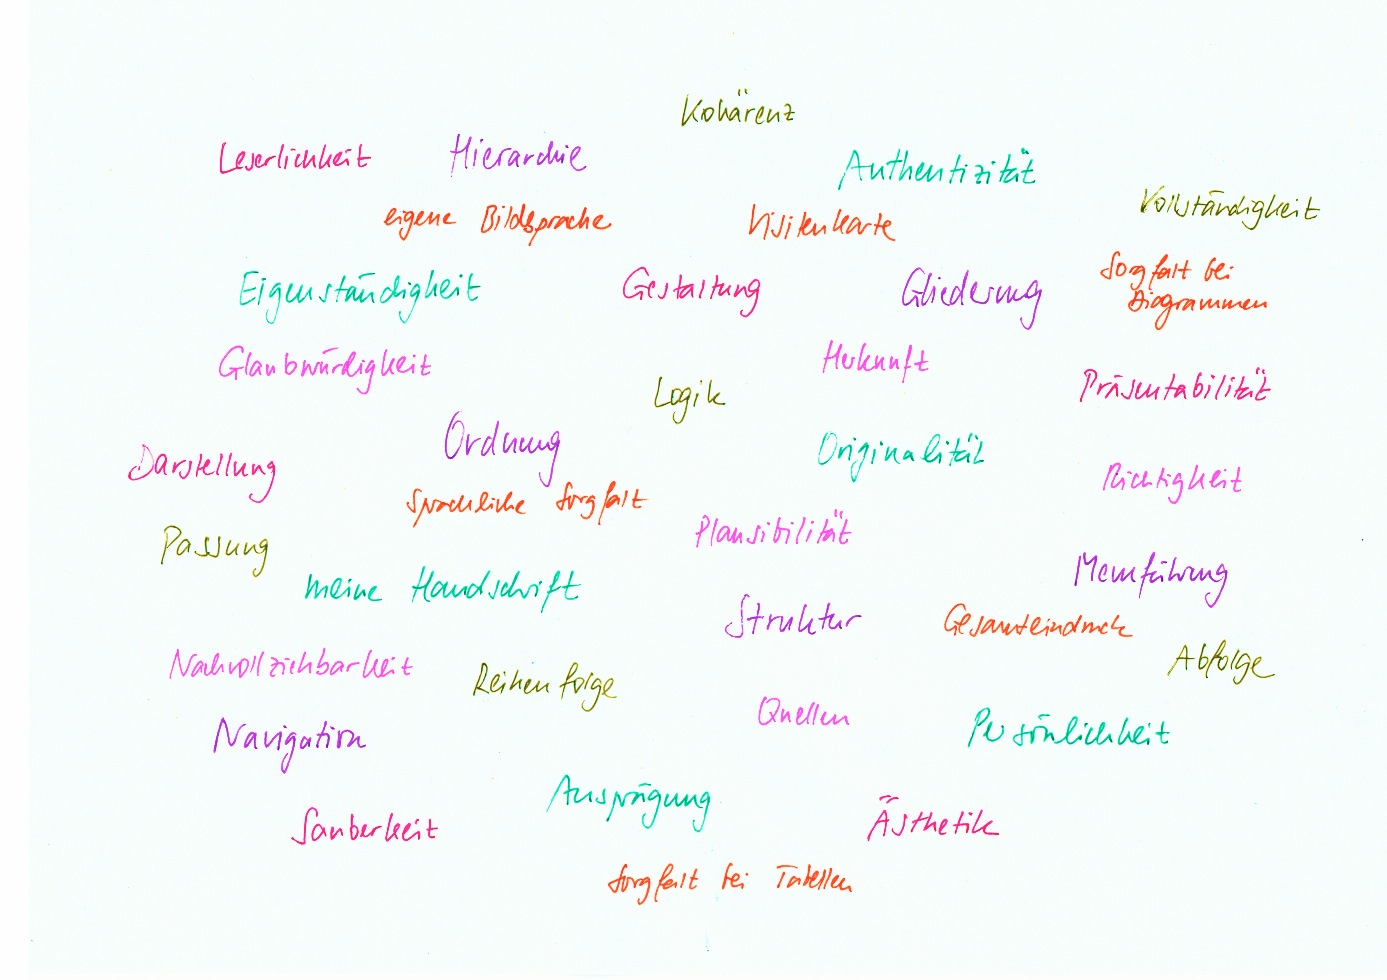 Kohärenz
Leserlichkeit
Hierarchie
Authentizität
Vollständigkeit
eigene Bildsprache
Visitenkarte
Eigenständigkeit
Gestaltung
Gliederung
Sorgfalt bei
Diagrammen
Glaubwürdigkeit
Herkunft
Logik
Präsentabilität
Ordnung
Originalität
Darstellung
Richtigkeit
sprachliche Sorgfalt
Plausibilität
Passung
meine Handschrift
Menuführung
Struktur
Gesamteindruck
Nachvollziehbarkeit
Reihenfolge
Abfolge
Quellen
Navigation
Persönlichkeit
Ausprägung
Sauberkeit
Ästhetik
Sorgfalt bei Tabellen